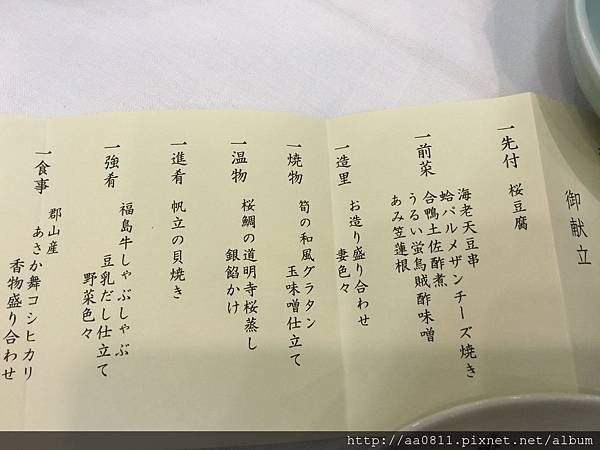 御献立
一先付 桜豆腐
一前菜 海老天豆串
蛤パルメザンチーズ焼き
合鴨土佐酢煮
うるい蛍烏賊酢味噌
あみ笠蓮根
一造里 お造り盛り合わせ
妻色々
一焼物 筍の和風グラタン
玉味噌仕立て
一温物 桜鯛の道明寺桜蒸し
銀餡かけ
一進肴 帆立の貝焼き
一強肴 福島牛しゃぶしゃぶ
豆乳だし仕立て
野菜色々
一食事 郡山産
あさか舞コシヒカリ
香物盛り合わせ
http://aa0811.pixnet.net/album